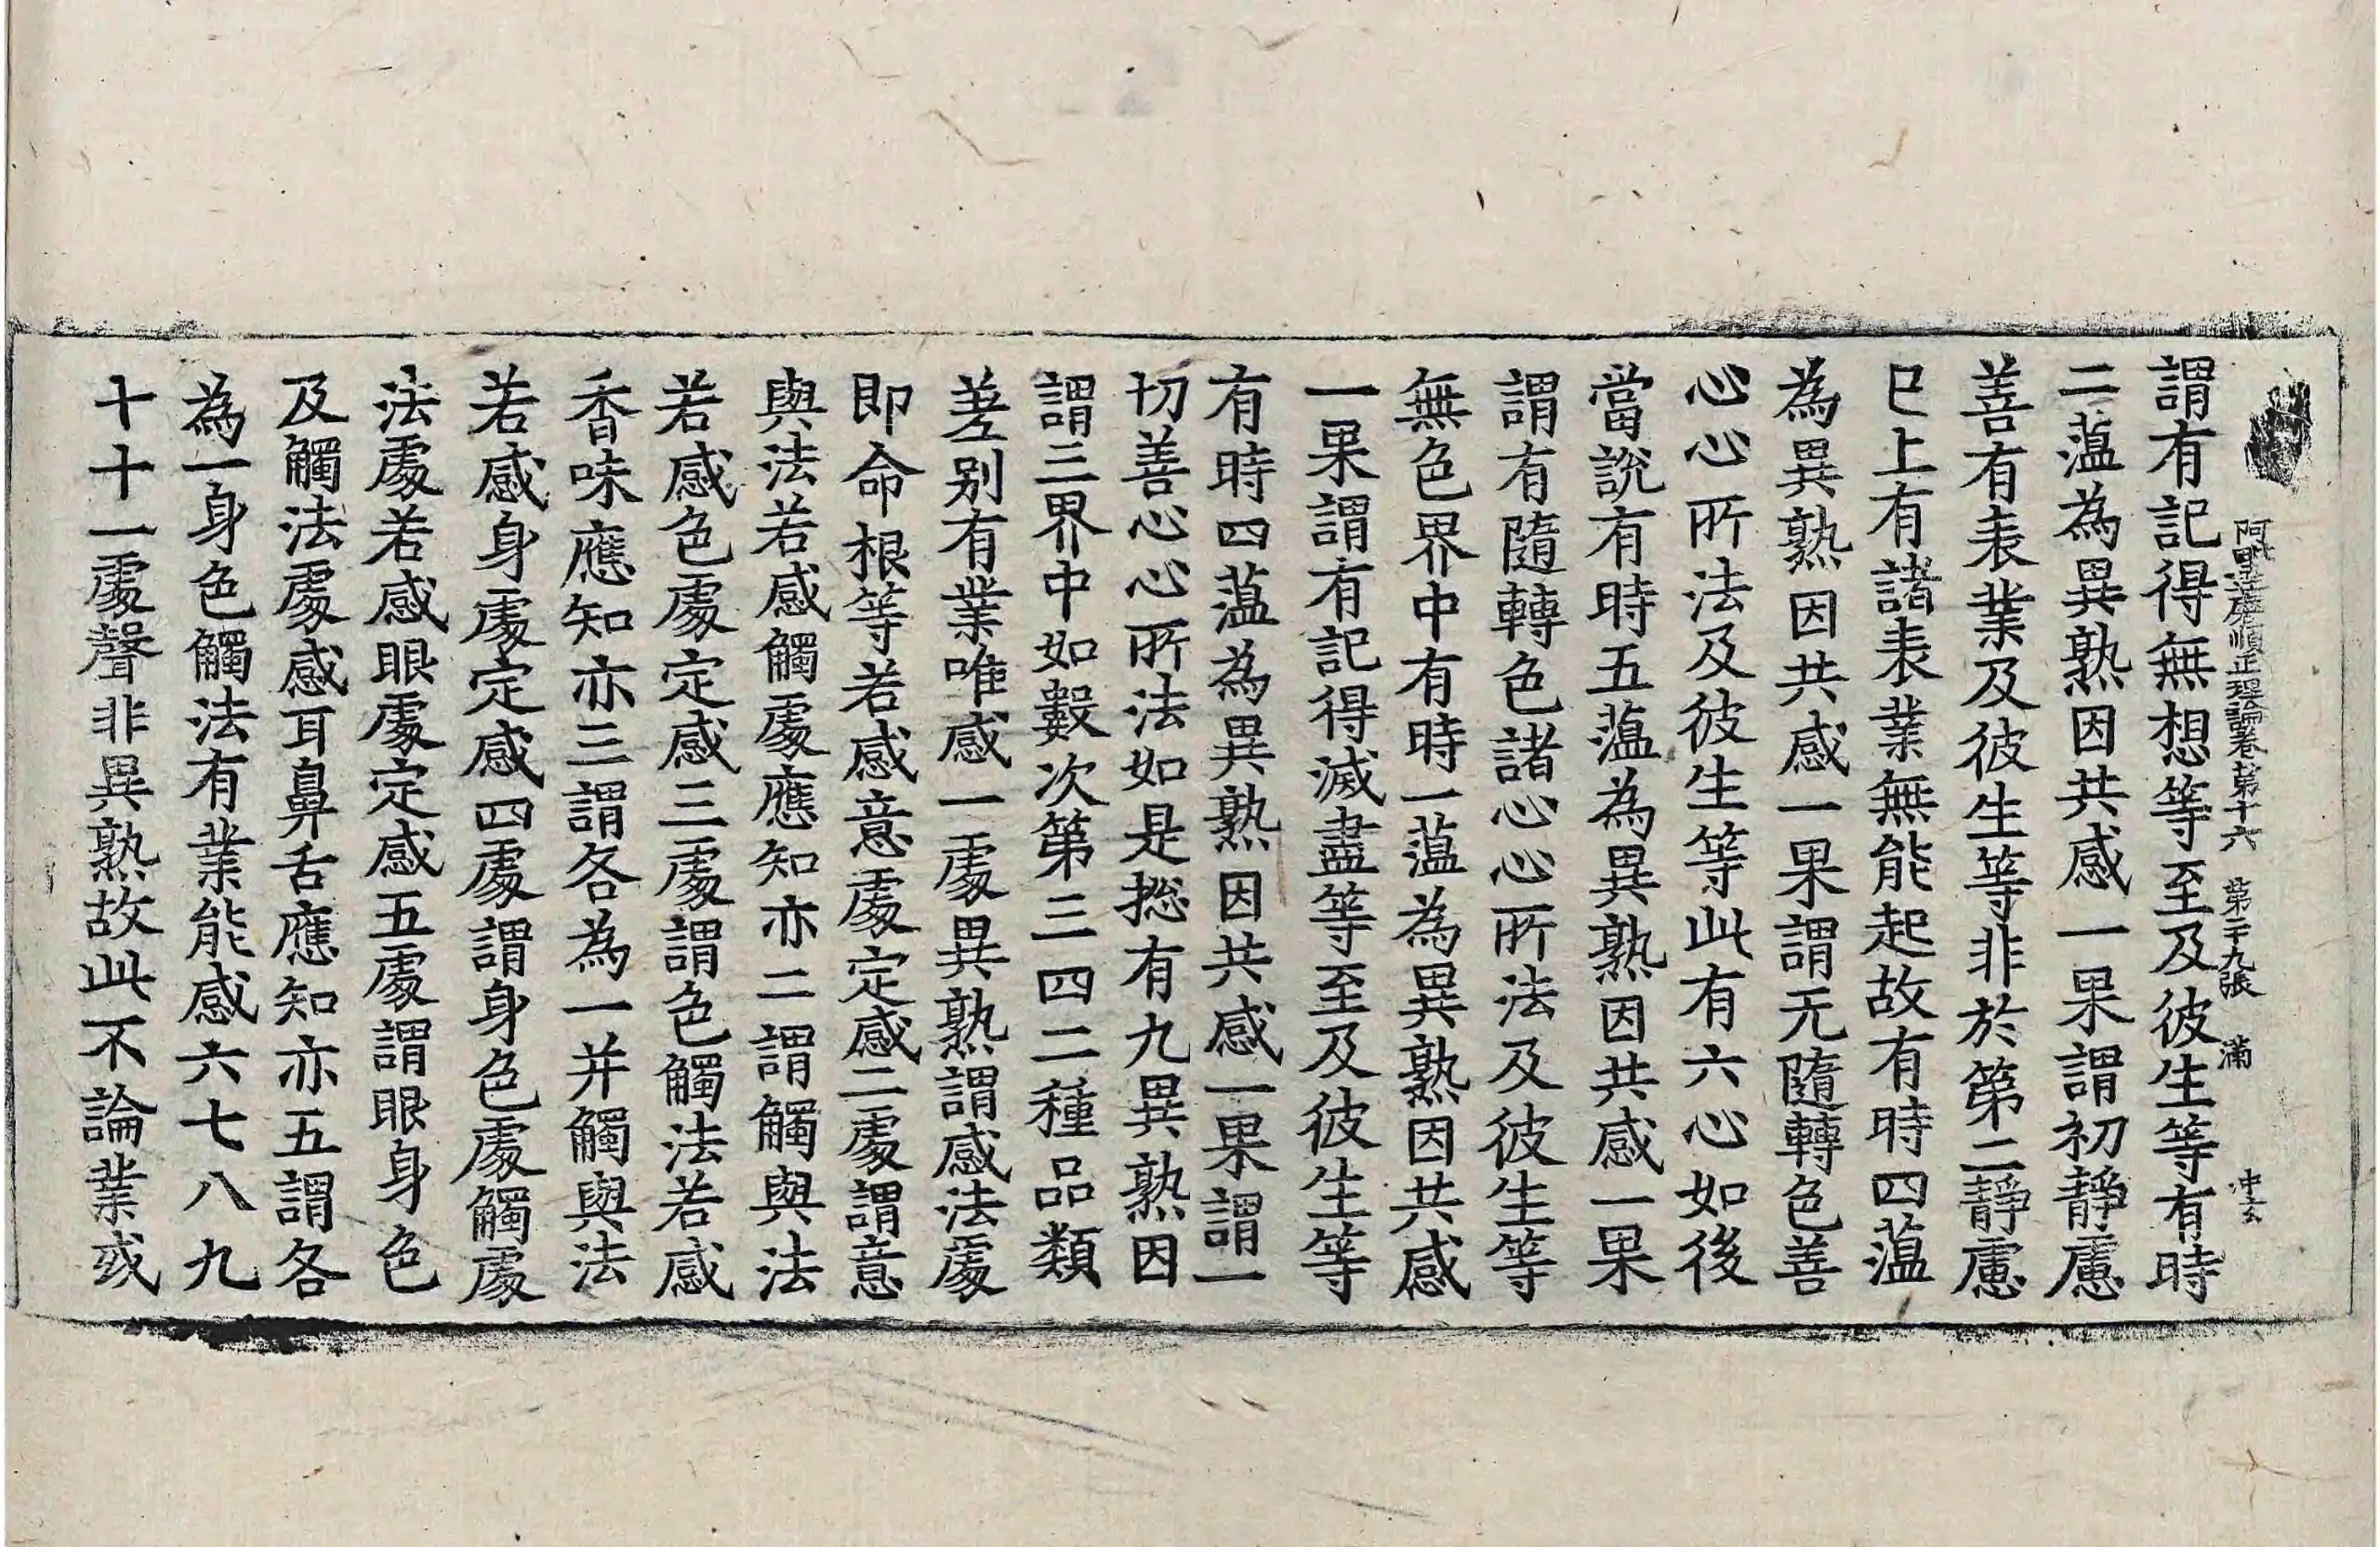 阿毗達磨順正理論卷第十六 第二十九張 滿
謂有記得無想等至及彼生等有時
二蕰為異熟因共感一果謂初靜慮
善有表業及彼生等非於第二靜慮
已上有諸表業無能起故有時四蕰
為異熟因共感一果謂无隨轉色善
心心所法及彼生等此有六心如後
當說有時五蕰為異熟因共感一果
謂有隨轉色諸心心所法及彼生等
無色界中有時一蕰為異熟因共感
一果謂有記得滅盡等至及彼生等
有時四蕰為異熟因共感一果謂一
切善心心所法如是捴有九異熟因
謂三界中如數次第三四二種品類
差別有業唯感一處異熟謂感法處
即命根等若感意處定感二處謂意
與法若感觸處應知亦二謂觸與法
若感色處定感三處謂色觸法若感
香味應知亦三謂各為一并觸與法
若感身處定感四處謂身色處觸處
法處若感眼處定感五處謂眼身色
及觸法處感耳鼻舌應知亦五謂各
為一身色觸法有業能感六七八九
十十一處聲非異熟故此不論業或